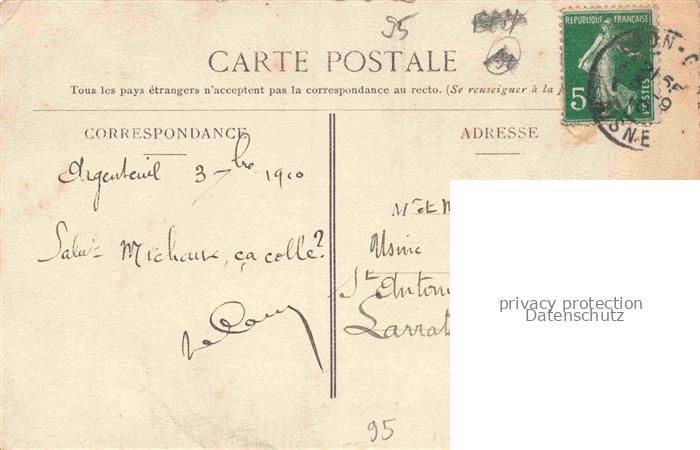 95
CARTE POSTALE
Tous les pays étrangers n'acceptent pas la correspondance au recto. (Se renseigner à la
REPUBLIQUE FRANÇAISE
5
POSTES
CORRESPONDANCE
ADRESSE
Argenteuil 3 bre 1910
Mr et M
Salut Michaux, ça colle?
Usine
St Antoni
Larrat
privacy protection
Datenschutz
95